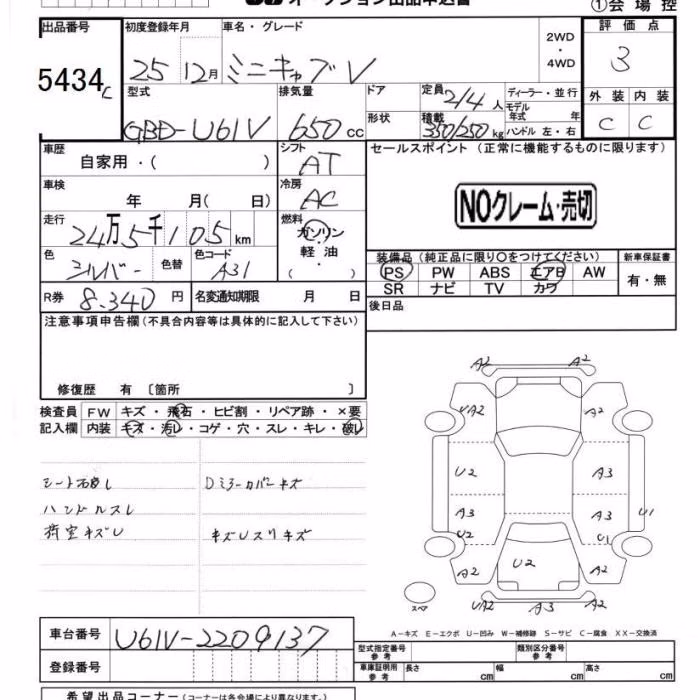 ①会場控
出品番号
5434
初度登録年月
25 12月
車名・グレード
ミニキャブV
2WD
・
4WD
評価点
3
型式
GBD-U61V
排気量
650cc
ドア
形状
定員
2/4人
積載
350/250kg
ディーラー・並行
モデル
年式 年
ハンドル 左・右
外装 内装
C C
車歴
自家用・( )
シフト
AT
車検
年 月( 日)
冷房
AC
走行
24万5千105km
燃料
ガソリン
・
軽油
( ・ )
色
シルバー
色替
色コード
A31
R券 8.340円
名変通知期限 月 日
セールスポイント (正常に機能するものに限ります)
NOクレーム・売切
装備品 (純正品に限り○をつけてください)
PS PW ABS エアB AW
SR ナビ TV カワ
新車保証書
有・無
後日品
注意事項申告欄(不具合内容等は具体的に記入して下さい)
修復歴 有 〔箇所 〕
検査員 FW キズ・飛石・ヒビ割・リペア跡・×要
記入欄 内装 キズ・汚レ・コゲ・穴・スレ・キレ・破レ
ハンドルスレ
Dミラーカバーキズ
荷室キズU
A2 A2
UA2 A2
U2 A3
A3 A3 U1
U2 U1
A2 U2 A2
スペア
UA2 A3 A2
A－キズ E－エクボ U－凹み W－補修跡 S－サビ C－腐食 XX－交換済
車台番号 U61V-2209137
登録番号
型式指定番号
参考
類別区分番号
参考
車庫証明用
参考
長さ cm
幅 cm
高さ cm
希望出品コーナー(コーナーは各会場により異なります。)